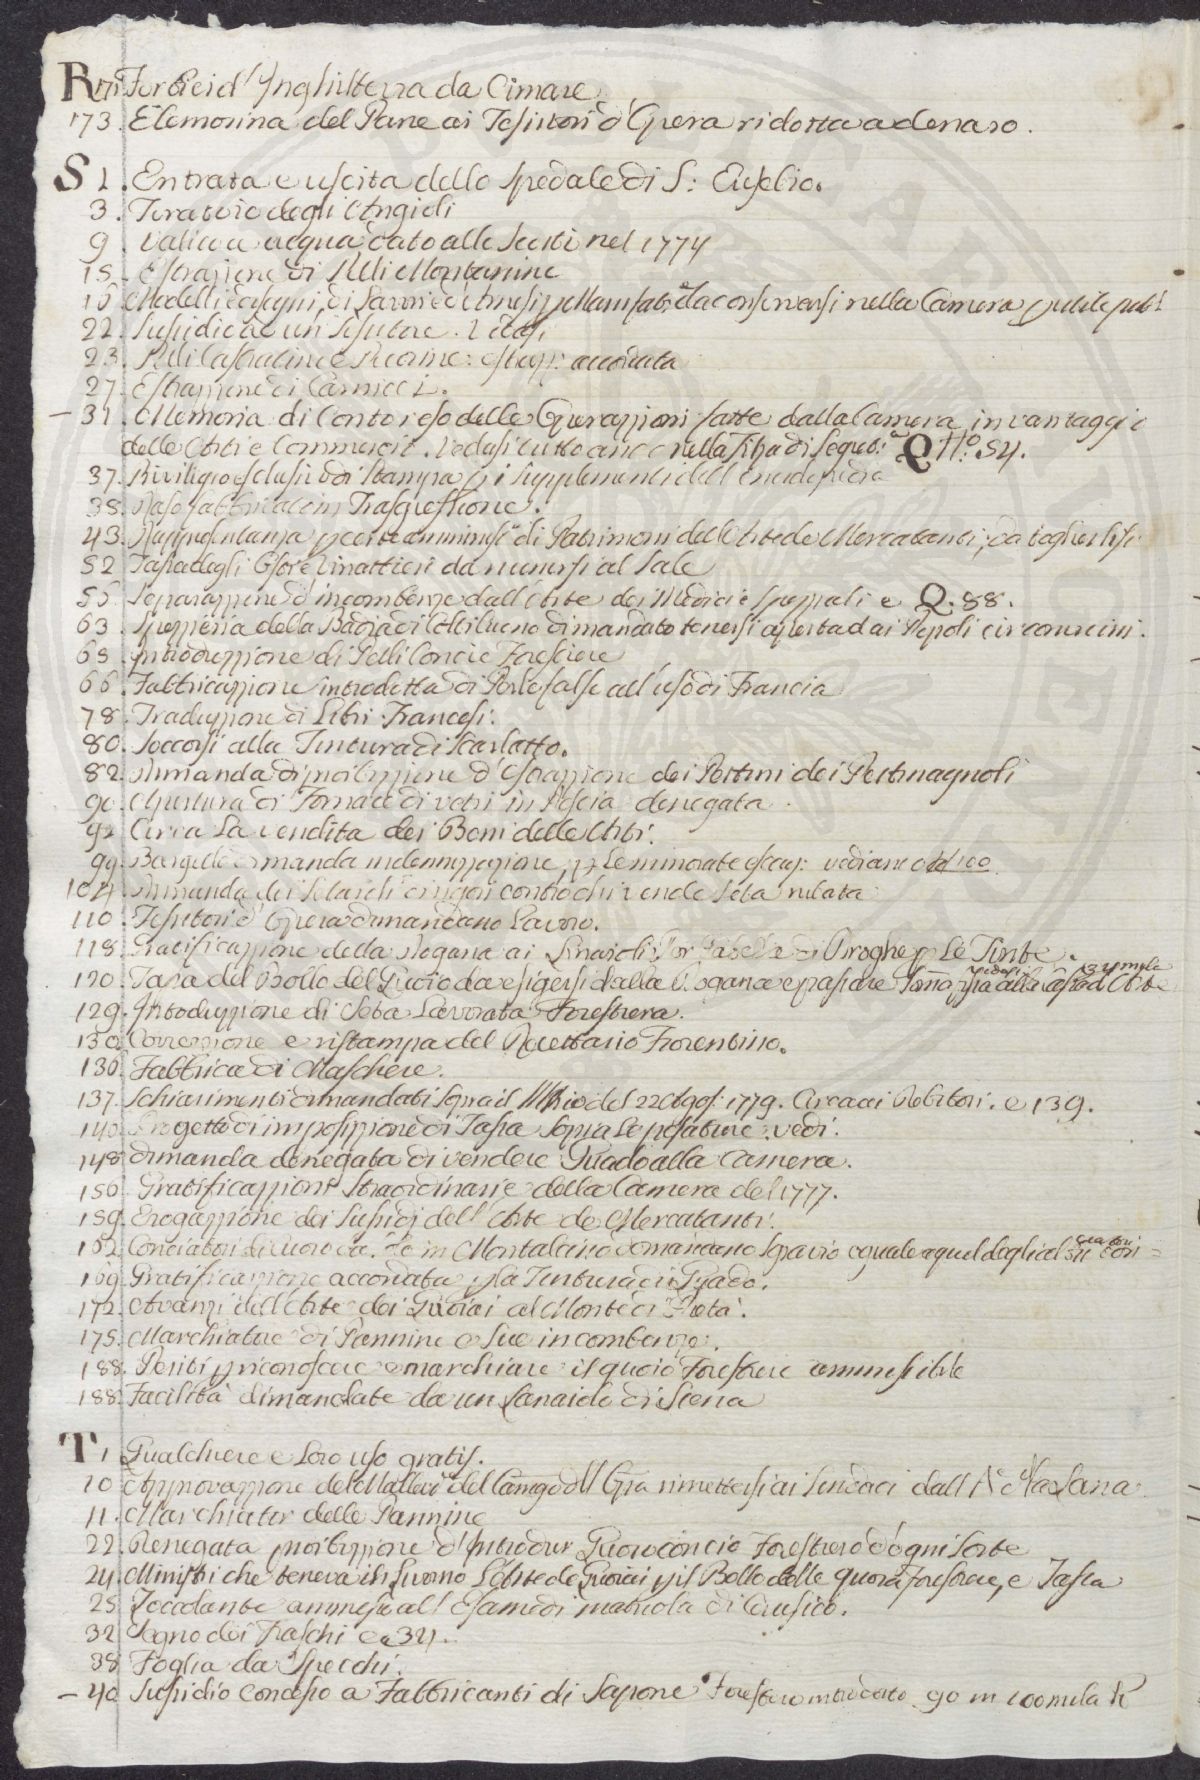 R 171 Forbici d'Inghilterra da Cimare
173. Elemosina del Pane ai Tessitori d'Opera ridotta a denaro.
S 1. Entrata e uscita dello Spedale di S: Eusebio.
3. Tiratoio degli Angioli
9. Valico a acqua dato alle Scesti nel 1774
15. Estrazione di Pelli Montanine
16 Modelli e disegni di Lavori e d'Arnesi p Manifat:e da conservarsi nella Camera p utile pub:
22. Sussidio a un Tessitore.
23. Pelli Castratine e Pecorine: estraz: accordata
27. Estrazione di Carnicci.
- 31. Memoria di Conto reso delle Operazzioni fatte dalla Camera in vantaggio
delle Arti e Commercio. Vedasi tutto anco nella filza di Segreti: Q N.o 54.
37. Privilegio esclusivo di Stampa p i supplementi dell'Enciclopedia
38. Raso fabbricato in Trasgressione.
43. Rappresentanza p certe ammin: di Patrimoni dell'Arte de Mercatanti, da togliersi
52 Tassa degli Osti e Vinattieri da riunirsi al Sale
55. Separazzione d'incombenze dall'Arte dei Medici e Speziali e Q. 88.
63. Spezieria della Badia di Coltibuono dimandato tenersi aperta dai Popoli circonvicini.
65. Introduzzione di Pelli Concie Forestiere
66. Fabbricazzione introdotta di Perle false all'uso di Francia
78. Traduzzione di Libri Francesi.
80. Soccorsi alla Tintura di Scarlatto.
82. Dimanda di proibizzione d'Estrazzione dei Pettini dei Pettinagnoli
90. Apertura di Fornace di vetri in Pescia denegata.
92 Circa La vendita dei Beni delle Arti.
99. Bargello dimanda indennizzazione, p Le minorate esecuz: vediane al 100
104. Dimanda dei Setaioli e rigori contro chi vende seta rubata
110. Tessitori d'Opera dimandano Lavoro.
118. Gratificazzione della Dogana ai Linaioli Per Gabella di Droghe p Le Tinte.
120. Tassa del Bollo del Quoio da esigersi dalla Dogana e passare Somma p sia alla Cassa d'Arte
129. Introduzzione di Seta Lavorata Forestiera.
130. Correzzione e ristampa del Ricettario Fiorentino.
136. Fabbrica di Maschere.
137. Schiarimenti dimandati sopra il del 22 Agos: 1779. Circa ai Debitori. e 139.
140. Progetto di imposizzione di Tassa sopra Le pesature. vedi.
148 Dimanda denegata di vendere Guado alla Camera.
150. Gratificazzioni Straordinarie della Camera del 1777.
159. Erogazzione dei Sussidj dell'Arte de Mercatanti.
162. Conciatori di Quoio in Montalcino domandano Sgravio eguale a quel degli altri Conciatori
169. Gratificazzione accordata p la Tintura di Guado.
172. Avanzi dell'Arte dei Quoiai al Monte di Pietà.
175. Marchiatore di Pannine e sue incombenze.
188. Periti p riconoscere e marchiare il quoio Forestiere ammissibile
188. Facilità dimandate da un Lanaiolo di Siena
T 1 Gualchiere e Loro uso gratis.
10 Approvazzione de Mallev: del Camgo dell'Op:a rimettersi ai Sindaci dall'A: della Lana
11. Marchiatore delle Pannine
22. Denegata proibizzione d'Introdur Quoio concio Forestiero d'ogni sorte
24. Ministri che teneva in Livorno L'Arte de Quoiai p il Bollo delle quoia forestiere, e Tassa
25. Zoccolante ammesso all'Esame di matricola di Cerusico.
32 Segno dei Fiaschi e a 34.
38. Foglia da Specchi.
- 40. Sussidio concesso a Fabbricanti di Sapone Forestiero introdotto. 90 in 100 mila